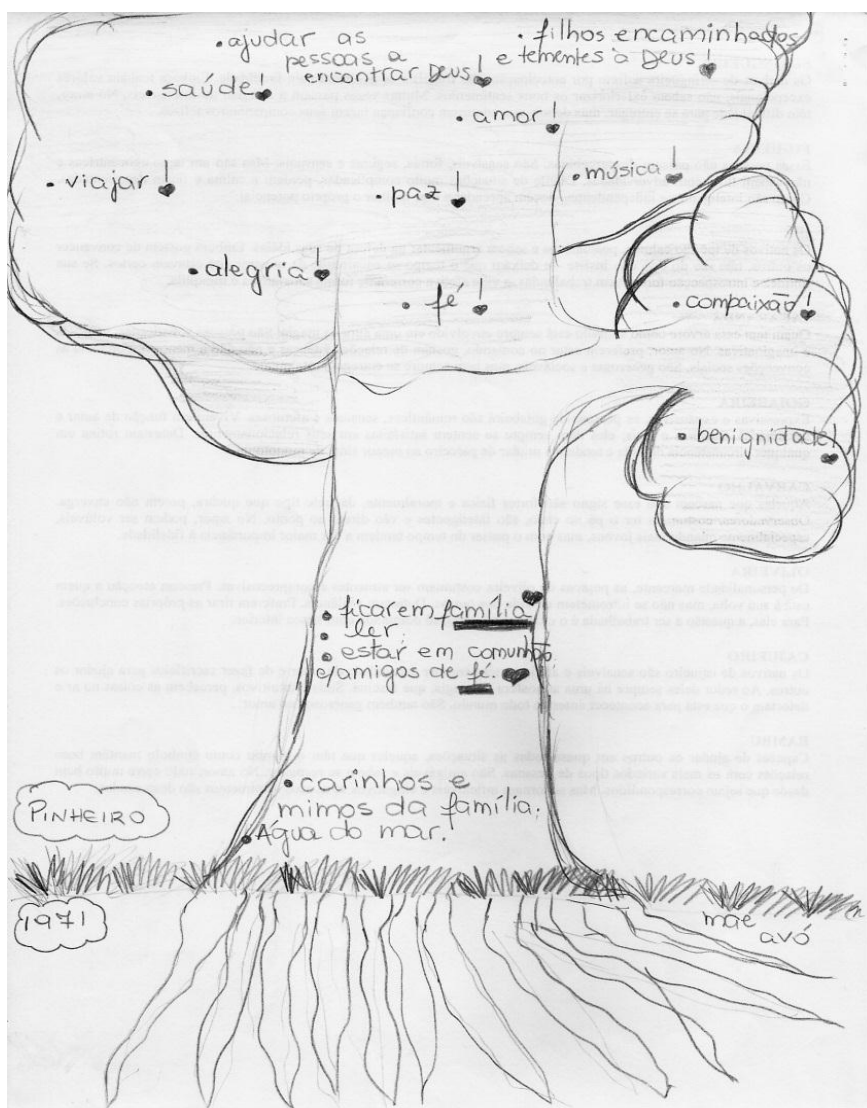 • ajudar as
pessoas a
encontrar Deus!
• filhos encaminhados
e tementes à Deus!
• saúde!
• amor!
• viajar!
• paz!
• música!
• alegria!
• fé!
• compaixão!
• benignidade!
• ficarem família
• ler
• estar em comunhão
c/amigos de fé.
• Carinhos e
mimos da família;
• Água do mar.
PINHEIRO
1971
mãe
avó